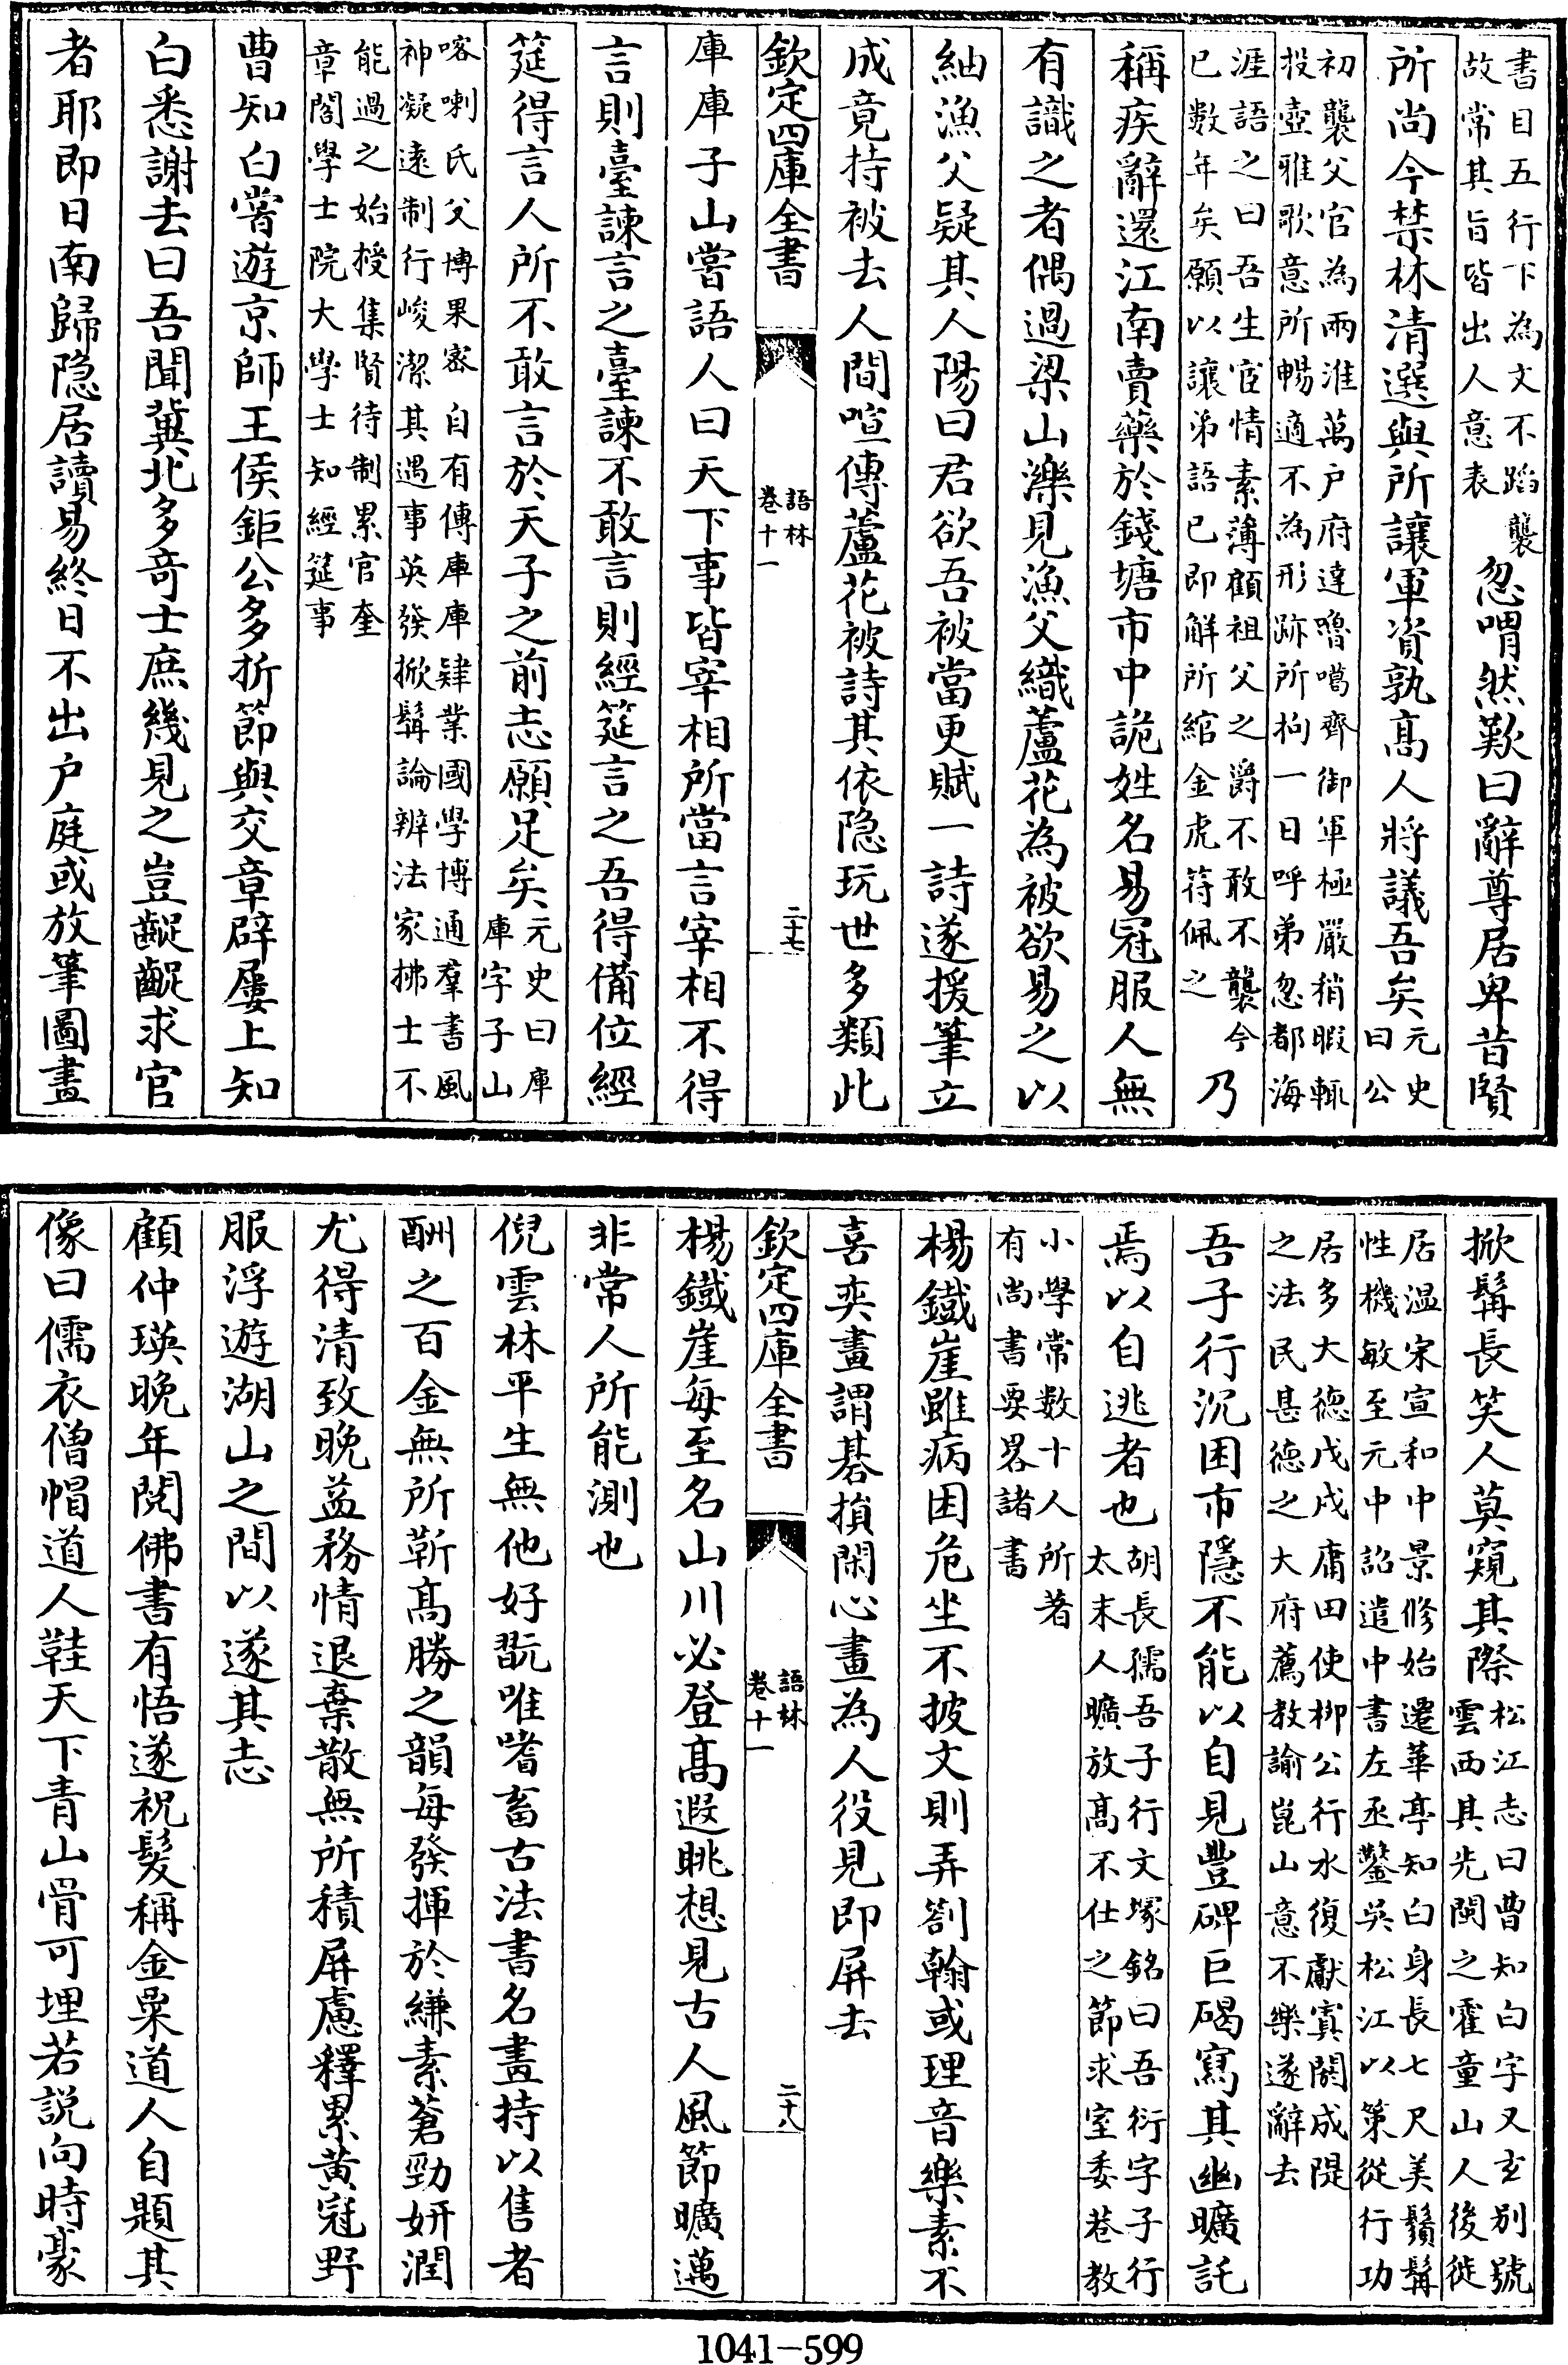 書目五行下為文不蹈襲
故常其旨皆出人意表
忽喟然歎曰辭尊居卑昔賢
所尚今禁林清選與所讓軍資孰高人將議吾矣
元史
曰公
初襲父官為兩淮萬户府達嚕噶齊御軍極嚴稍暇輒
投壺雅歌意所暢適不為形跡所拘一日呼弟忽都海
涯語之曰吾生宦情素薄顧祖父之爵不敢不襲今
已數年矣願以讓弟語已即解所綰金虎符佩之
乃
稱疾辭還江南賣藥於錢塘市中詭姓名易冠服人無
有識之者偶過梁山濼見漁父織蘆花為被欲易之以
紬漁父疑其人陽曰君欲吾被當更賦一詩遂援筆立
成竟持被去人間喧傳蘆花被詩其依隐玩世多類此
欽定四庫全書
語林
卷十一
二十七
庫庫子山嘗語人曰天下事皆宰相所當言宰相不得
言則臺諫言之臺諫不敢言則經筵言之吾得備位經
筵得言人所不敢言於天子之前志願足矣
元史曰庫
庫字子山
喀喇氏父博果密自有傳庫庫肄業國學博通羣書風
神凝遠制行峻潔其遇事英發掀髯論辨法家拂士不
能過之始授集賢待制累官奎
章閣學士院大學士知經筵事
曹知白嘗遊京師王侯鉅公多折節與交章辟屢上知
白悉謝去曰吾聞冀北多竒士庶幾見之豈齷齪求官
者耶即日南歸隐居讀易終日不出户庭或放筆圖畫
掀髯長笑人莫窺其際
松江志曰曹知白字又玄别號
雲西其先閩之霍童山人後徙
居温宋宣和中景修始遷華亭知白身長七尺美鬚髯
性機敏至元中詔遣中書左丞鑿吳松江以策從行功
居多大德戊戌庸田使栁公行水復獻寘閼成隄
之法民甚德之大府薦教諭崑山意不樂遂辭去
吾子行沉困市隱不能以自見豐碑巨碣寫其幽曠託
焉以自逃者也
胡長孺吾子行文塚銘曰吾衍字子行
太末人曠放高不仕之節求室委巷教
小學常數十人所著
有尚書要畧諸書
楊鐵崖雖病困危坐不披文則弄劄翰或理音樂素不
喜奕畫謂棊損閑心畫為人役見即屏去
欽定四庫全書
語林
卷十一
二十八
楊鐵崖每至名山川必登高遐眺想見古人風節曠邁
非常人所能測也
倪雲林平生無他好翫唯嗜畜古法書名畫持以售者
酬之百金無所靳高勝之韻每發揮於縑素蒼勁妍潤
尤得清致晚益務情退棄散無所積屏慮釋累黄冠野
服浮遊湖山之間以遂其志
顧仲瑛晚年閱佛書有悟遂祝髮稱金粟道人自題其
像曰儒衣僧帽道人鞋天下青山骨可埋若説向時豪
1041-599